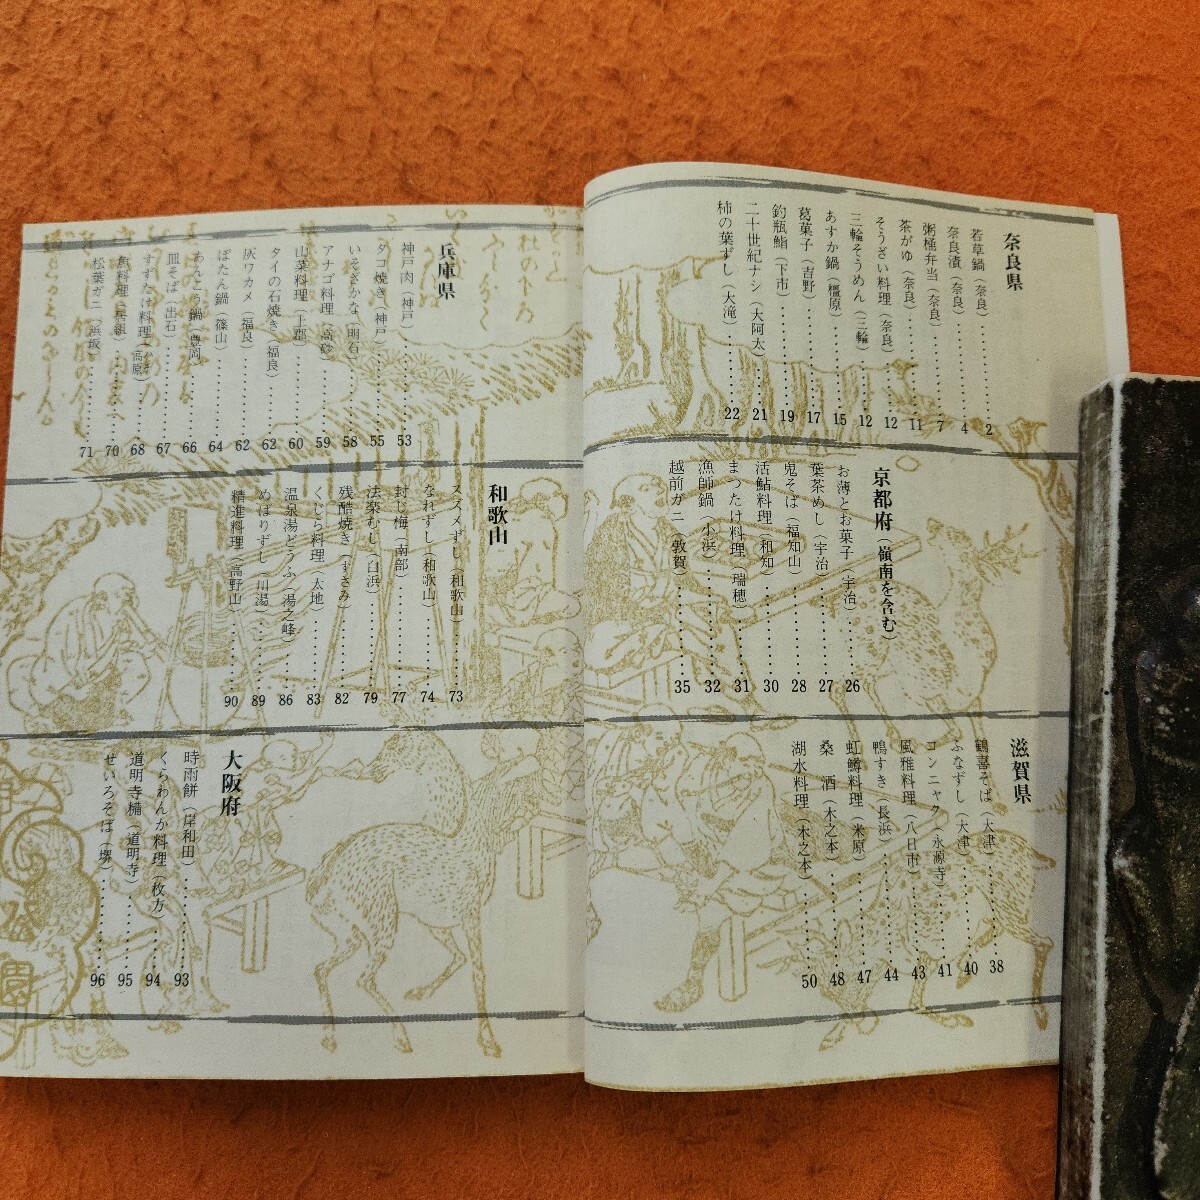 奈良県
若草鍋（奈良）……2
奈良漬（奈良）……4
粥桶弁当（奈良）……7
茶がゆ（奈良）……11
そうざい料理（奈良）……12
三輪そうめん（三輪）……12
あすか鍋（橿原）……15
葛菓子（吉野）……17
釣瓶鮨（下市）……19
二十世紀ナシ（大阿太）……21
柿の葉ずし（大滝）……22
京都府（嶺南を含む）
お薄とお菓子（宇治）……26
葉茶めし（宇治）……27
鬼そば（福知山）……28
活鮎料理（和知）……30
まつたけ料理（瑞穂）……31
漁師鍋（小浜）……32
越前ガニ（敦賀）……35
滋賀県
鶴喜そば（大津）……38
ふなずし（大津）……40
コンニャク（永源寺）……41
風雅料理（八日市）……43
鴨すき（長浜）……44
虹鱒料理（米原）……47
桑　酒（木之本）……48
湖水料理（木之本）……50
兵庫県
神戸肉（神戸）……53
タコ焼き（神戸）……55
いそざかな（明石）……58
アナゴ料理（高砂）……59
山菜料理（上郡）……60
タイの石焼き（福良）……62
灰ワカメ（福良）……62
ぼたん鍋（篠山）……64
あんこう鍋（豊岡）……66
皿そば（出石）……67
すずたけ料理（高原）……68
魚料理（居組）……70
松葉ガニ（浜坂）……71
和歌山
スズメずし（和歌山）……73
なれずし（和歌山）……74
封じ梅（南部）……77
法楽むし（白浜）……79
残酷焼き（すさみ）……82
くじら料理（太地）……83
温泉湯どうふ（湯之峰）……86
めはりずし（川湯）……89
精進料理（高野山）……90
大阪府
時雨餅（岸和田）……93
くらわんか料理（枚方）……94
道明寺糒（道明寺）……95
せいろそば（堺）……96